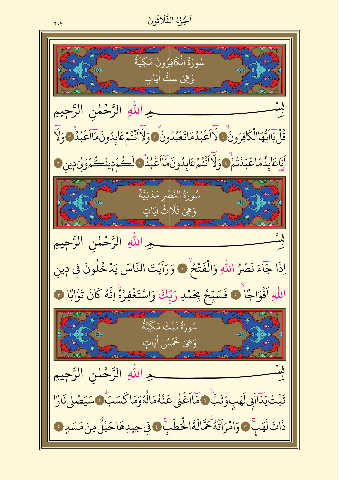 الجزء الثلاثون
سُورَةُ الْكَافِرُونَ مَكِّيَّةٌ
وَهِيَ سِتُّ اٰيَاتٍ
بِسْمِ اللهِ الرَّحْمٰنِ الرَّحِيمِ
قُلْ يَٓا اَيُّهَا الْكَافِرُونَۙ لَٓا اَعْبُدُ مَا تَعْبُدُونَۙ وَلَٓا اَنْتُمْ عَابِدُونَ مَٓا اَعْبُدُۚ وَلَٓا
اَنَا۬ عَابِدٌ مَا عَبَدْتُمْۙ وَلَٓا اَنْتُمْ عَابِدُونَ مَٓا اَعْبُدُۜ لَكُمْ دِينُكُمْ وَلِيَ دِينِ
سُورَةُ النَّصْرِ مَدَنِيَّةٌ
وَهِيَ ثَلَاثُ اٰيَاتٍ
بِسْمِ اللهِ الرَّحْمٰنِ الرَّحِيمِ
اِذَا جَٓاءَ نَصْرُ اللهِ وَالْفَتْحُۙ وَرَاَيْتَ النَّاسَ يَدْخُلُونَ فِي دِينِ
اللهِ اَفْوَاجًاۙ فَسَبِّحْ بِحَمْدِ رَبِّكَ وَاسْتَغْفِرْهُ اِنَّهُ كَانَ تَوَّابًا
سُورَةُ تَبَّتْ مَكِّيَّةٌ
وَهِيَ خَمْسُ اٰيَاتٍ
بِسْمِ اللهِ الرَّحْمٰنِ الرَّحِيمِ
تَبَّتْ يَدَٓا اَبِي لَهَبٍ وَتَبَّۜ مَٓا اَغْنٰى عَنْهُ مَالُهُ وَمَا كَسَبَۜ سَيَصْلٰى نَارًا
ذَاتَ لَهَبٍۚ وَامْرَاَتُهُ حَمَّالَةَ الْحَطَبِۚ فِي جِيدِهَا حَبْلٌ مِنْ مَسَدٍ